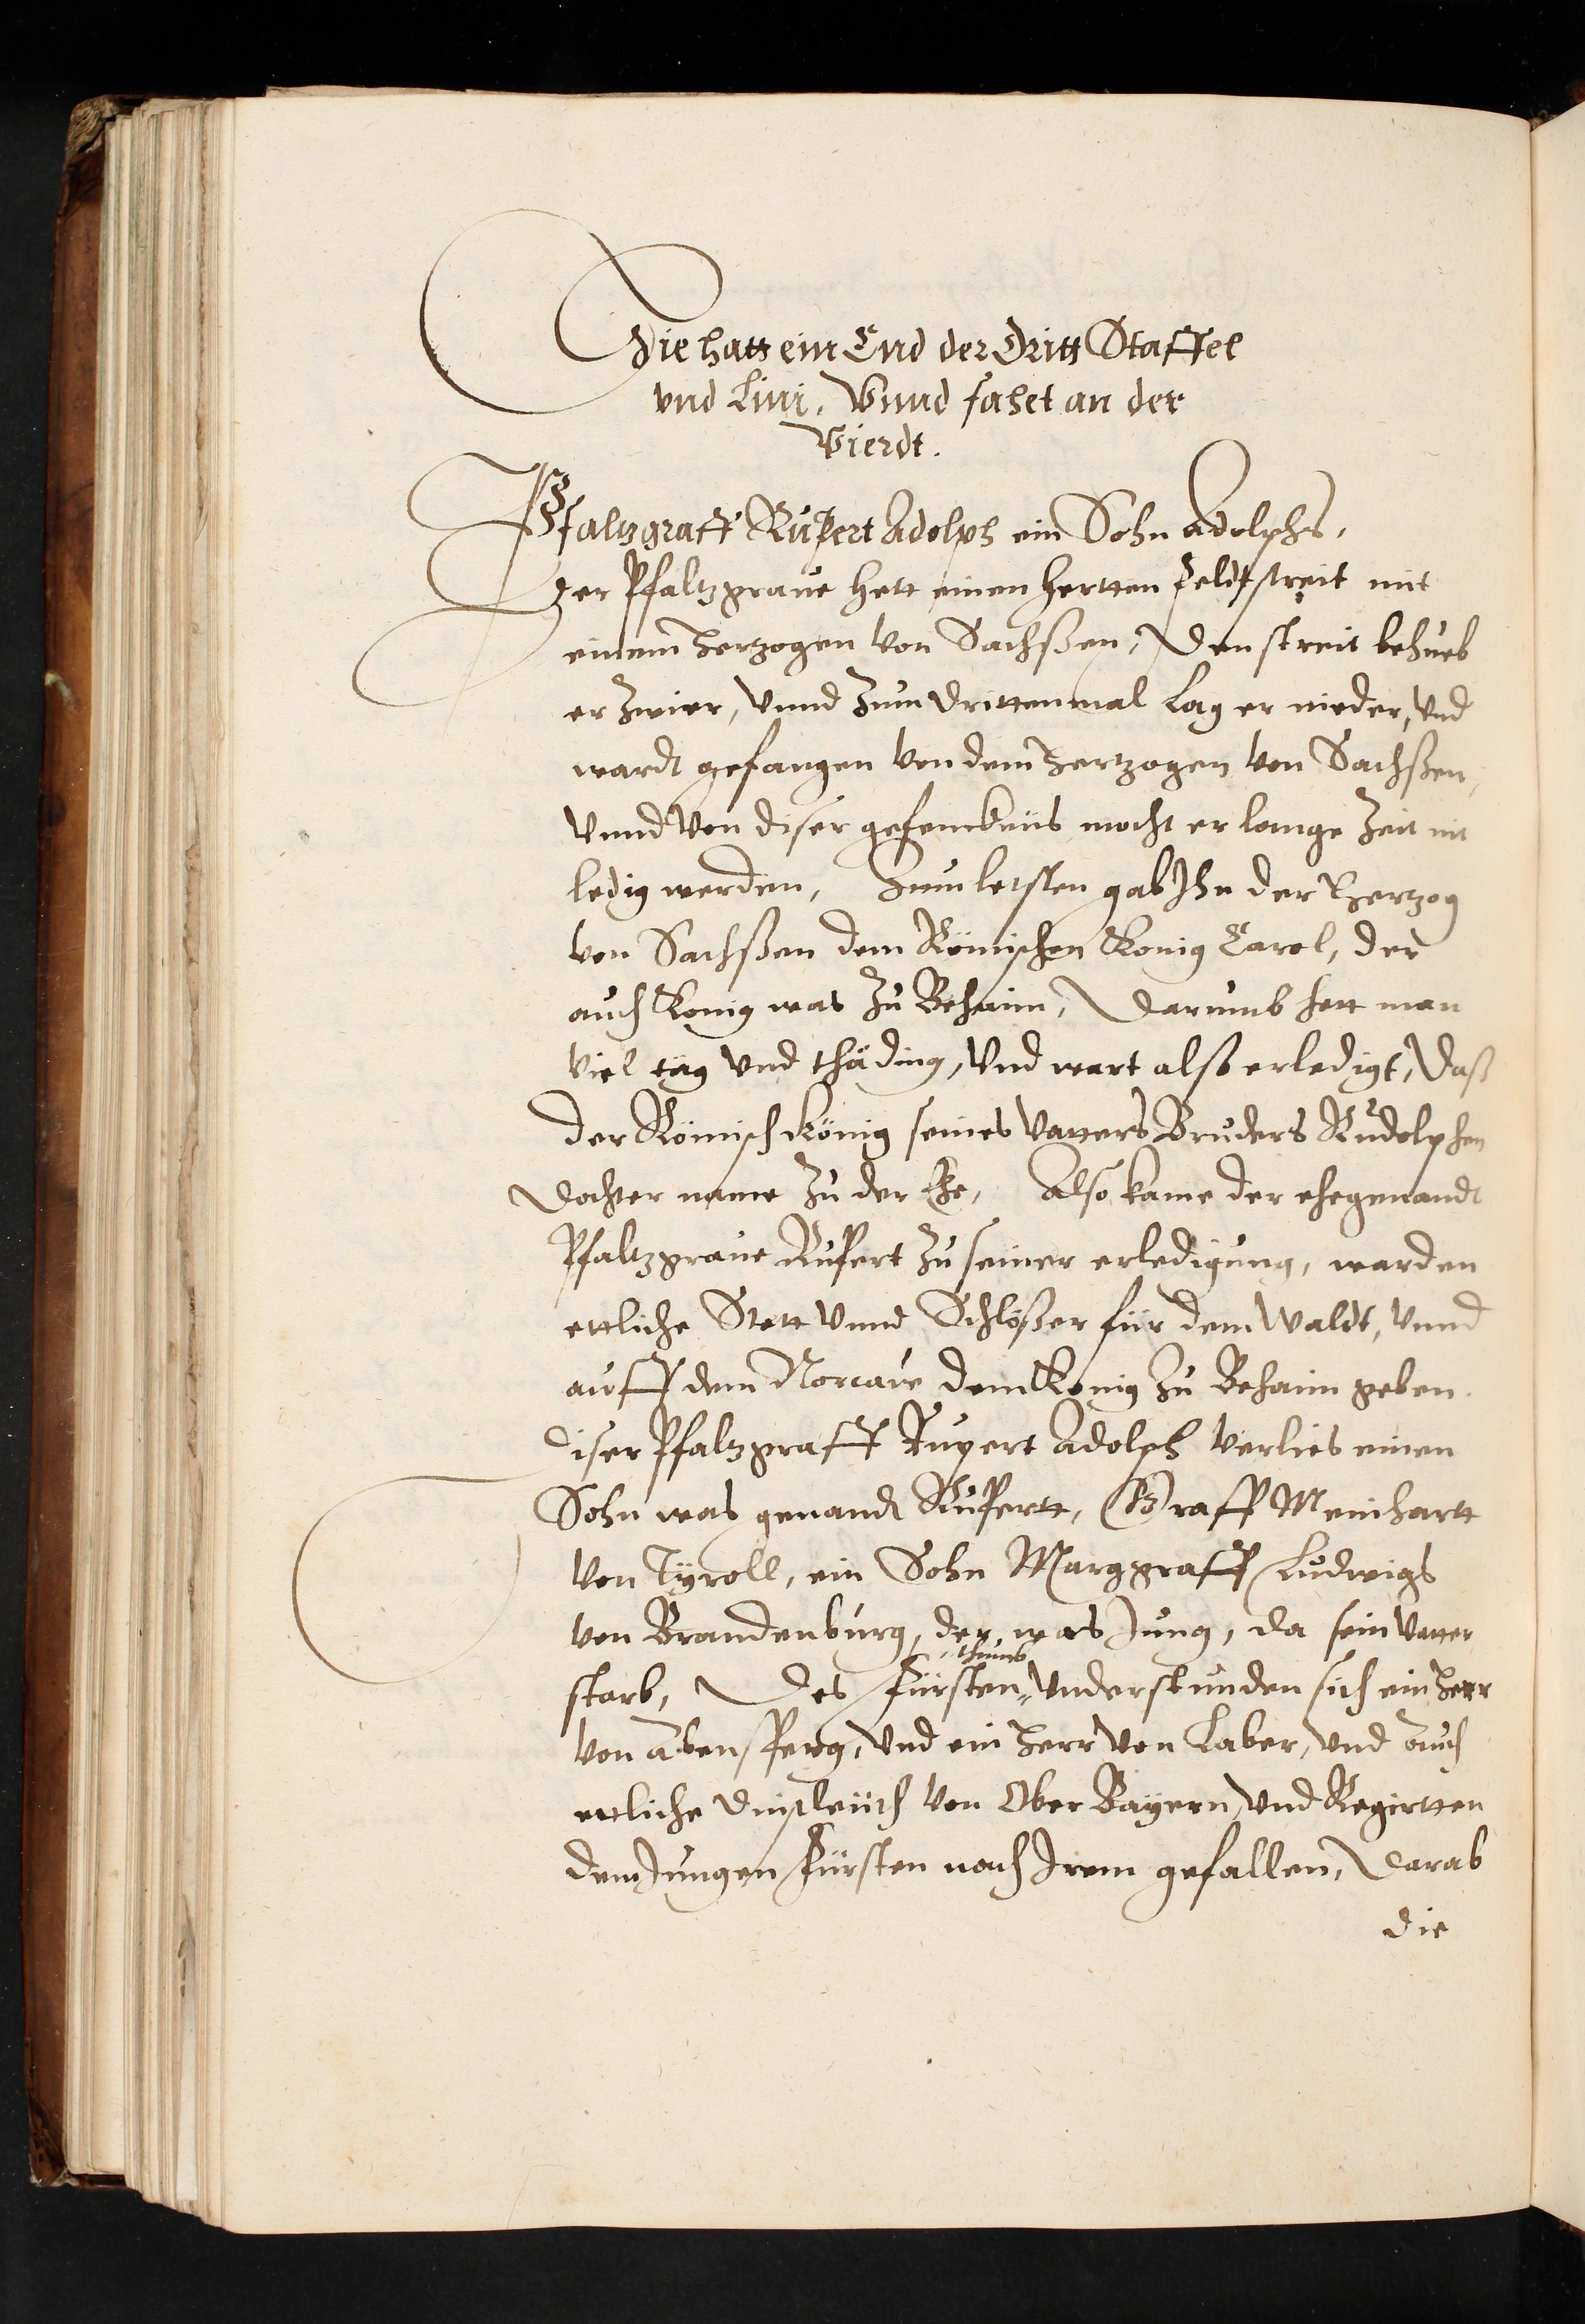 Hie hatt ein End der Dritt Staffel
vnd Lini. Vnnd fahet an der
Vierdt.
Pfaltzgraff Rupert Adolph ein Sohn Adolphs,
Der Pfaltzgraue hett einen hertten feldtstreit mit
einem Hertzogen von Sachßen, Den streit behueb
er zwier, Vnnd zum drittenmal lag er nieder, vnd
wardt gefangen von dem Hertzogen von Sachßen,
Vnnd von diser gefenckniis mocht er lange Zeit nit
ledig werden, Zum letsten gab Ihn der Hertzog
von Sachßen dem Römischen Konig Carol, der
auch Konig was zu Behaim, Darumb hett man
viel täg vnd thäding, Vnd wart also erledigt, Daß
der Römisch König seines vatters Bruders Rudolphen
Dochter name zu der Ehe, Also kame der ehegenandt
Pfaltzgraue Rupert zu seiner erledigung, warden
ettliche Stett Vnnd Schlößer für dem Waldt, Vnnd
auff dem Norcaue dem Konig zu Behaim geben.
Diser Pfaltzgraff Rupert Adolph verlies einen
Sohn was genandt Rupertt, Graff Meinhartt
von Tÿroll, ein Sohn Marggraff Ludwigs
von Brandenburg, der was Jung, da sein vatter
starb, Des Fürsten„thumb vnderstunden sich ein Herr
von Abensperg, Vnd ein Herr von Laber, Vnd auch
ettliche Dinstleüth von Ober Bayern, Vnd Regirtten
den Jungen Fürsten nach Irem gefallen, Darab
die